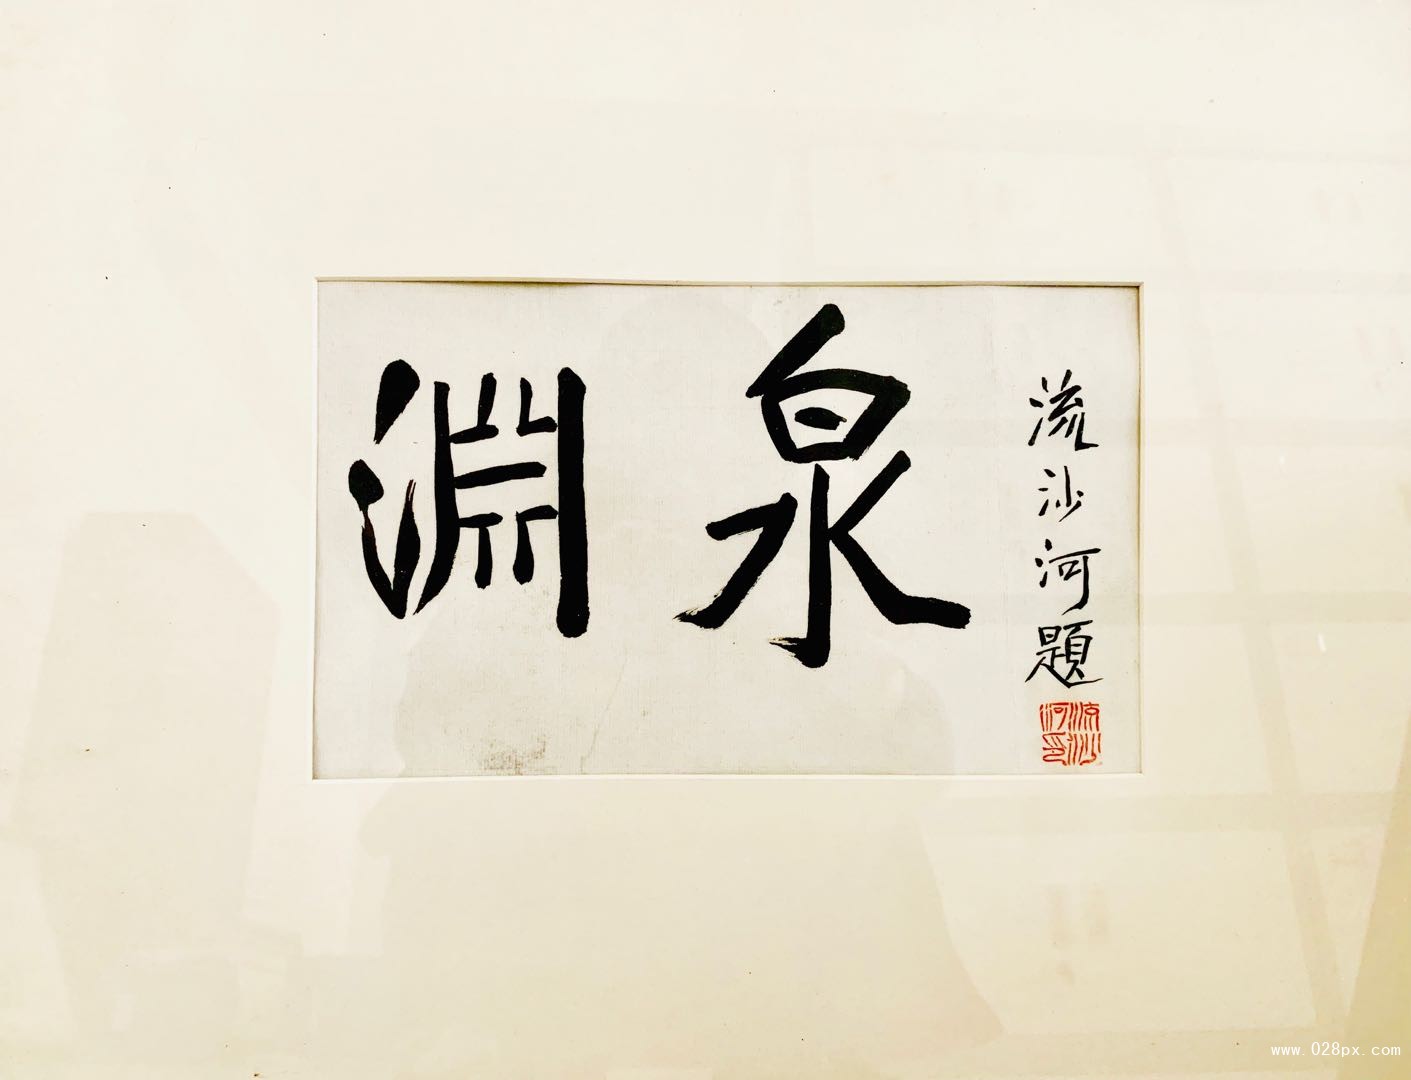 淵泉
流沙河題
流沙河印
www.028px.com